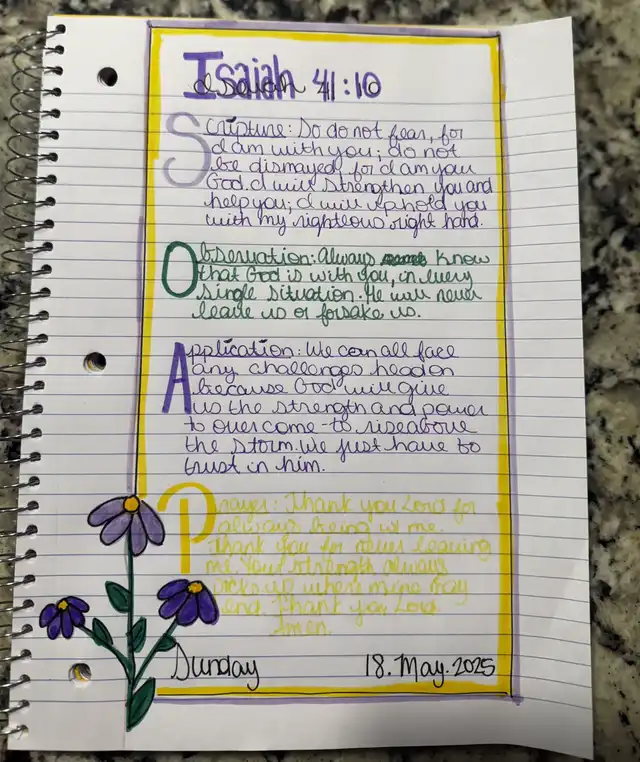 Isaiah 41:10
Scripture: So do not fear, for
I am with you; do not
be dismayed, for I am your
God. I will strengthen you and
help you; I will uphold you
with my righteous right hand.
Observation: Always know
that God is with you, in every
single situation. He will never
leave us or forsake us.
Application: We can all face
any challenges head on
because God will give
us the strength and power
to over come - to rise above
the storm. We just have to
trust in him.
Prayer: Thank you Lord for
always being w me.
Thank you for never leaving
me. Your strength always
up where mine may
end. Thank you Lord
Amen.
Sunday 18. May. 2025